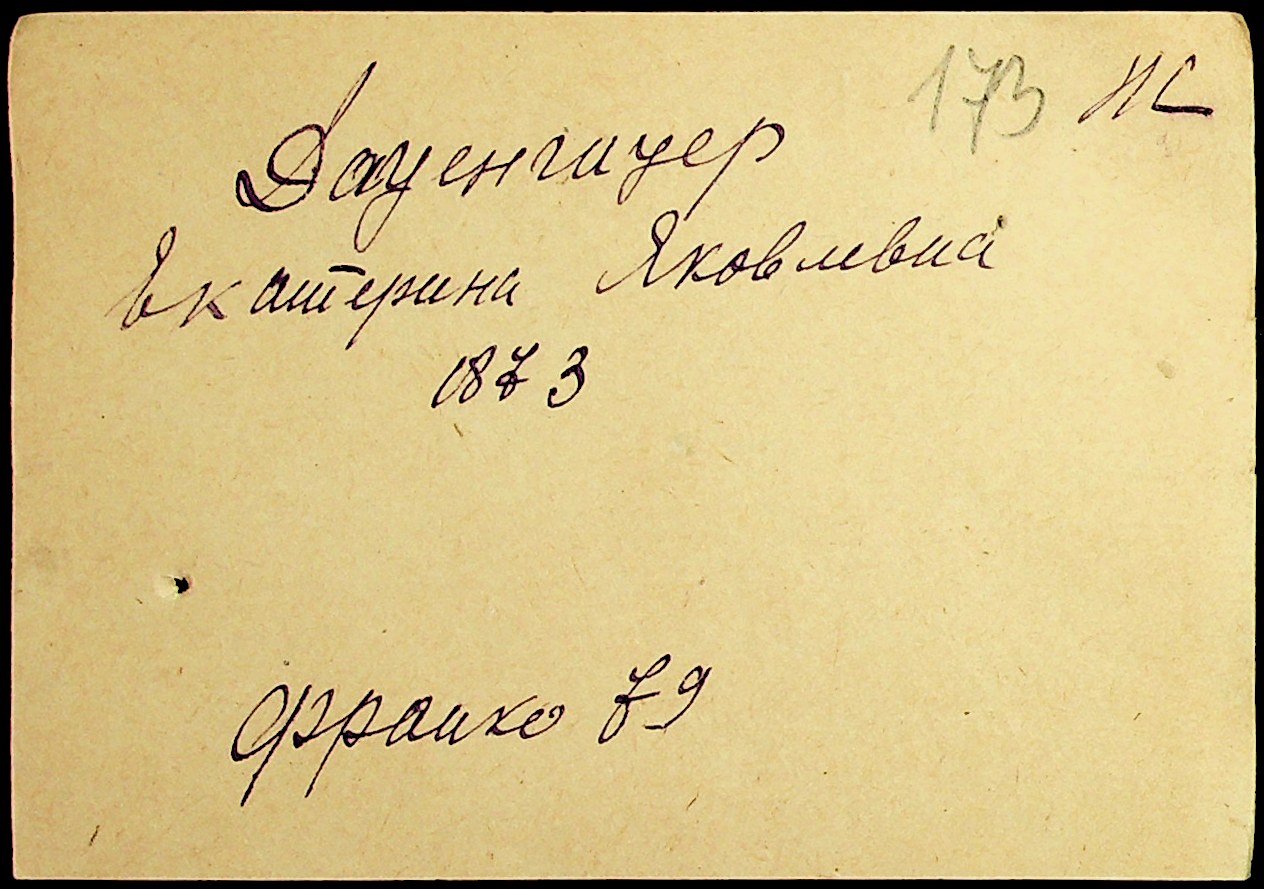 173
Дауенгауер
Екатерина Яковлевна
1873
Франко 79